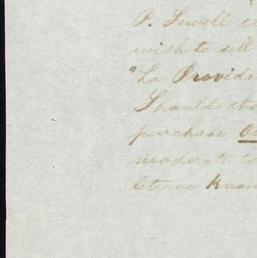 P. Sewell
wish to sell
"La Provide
Should the
purchase
moderate
let me Know